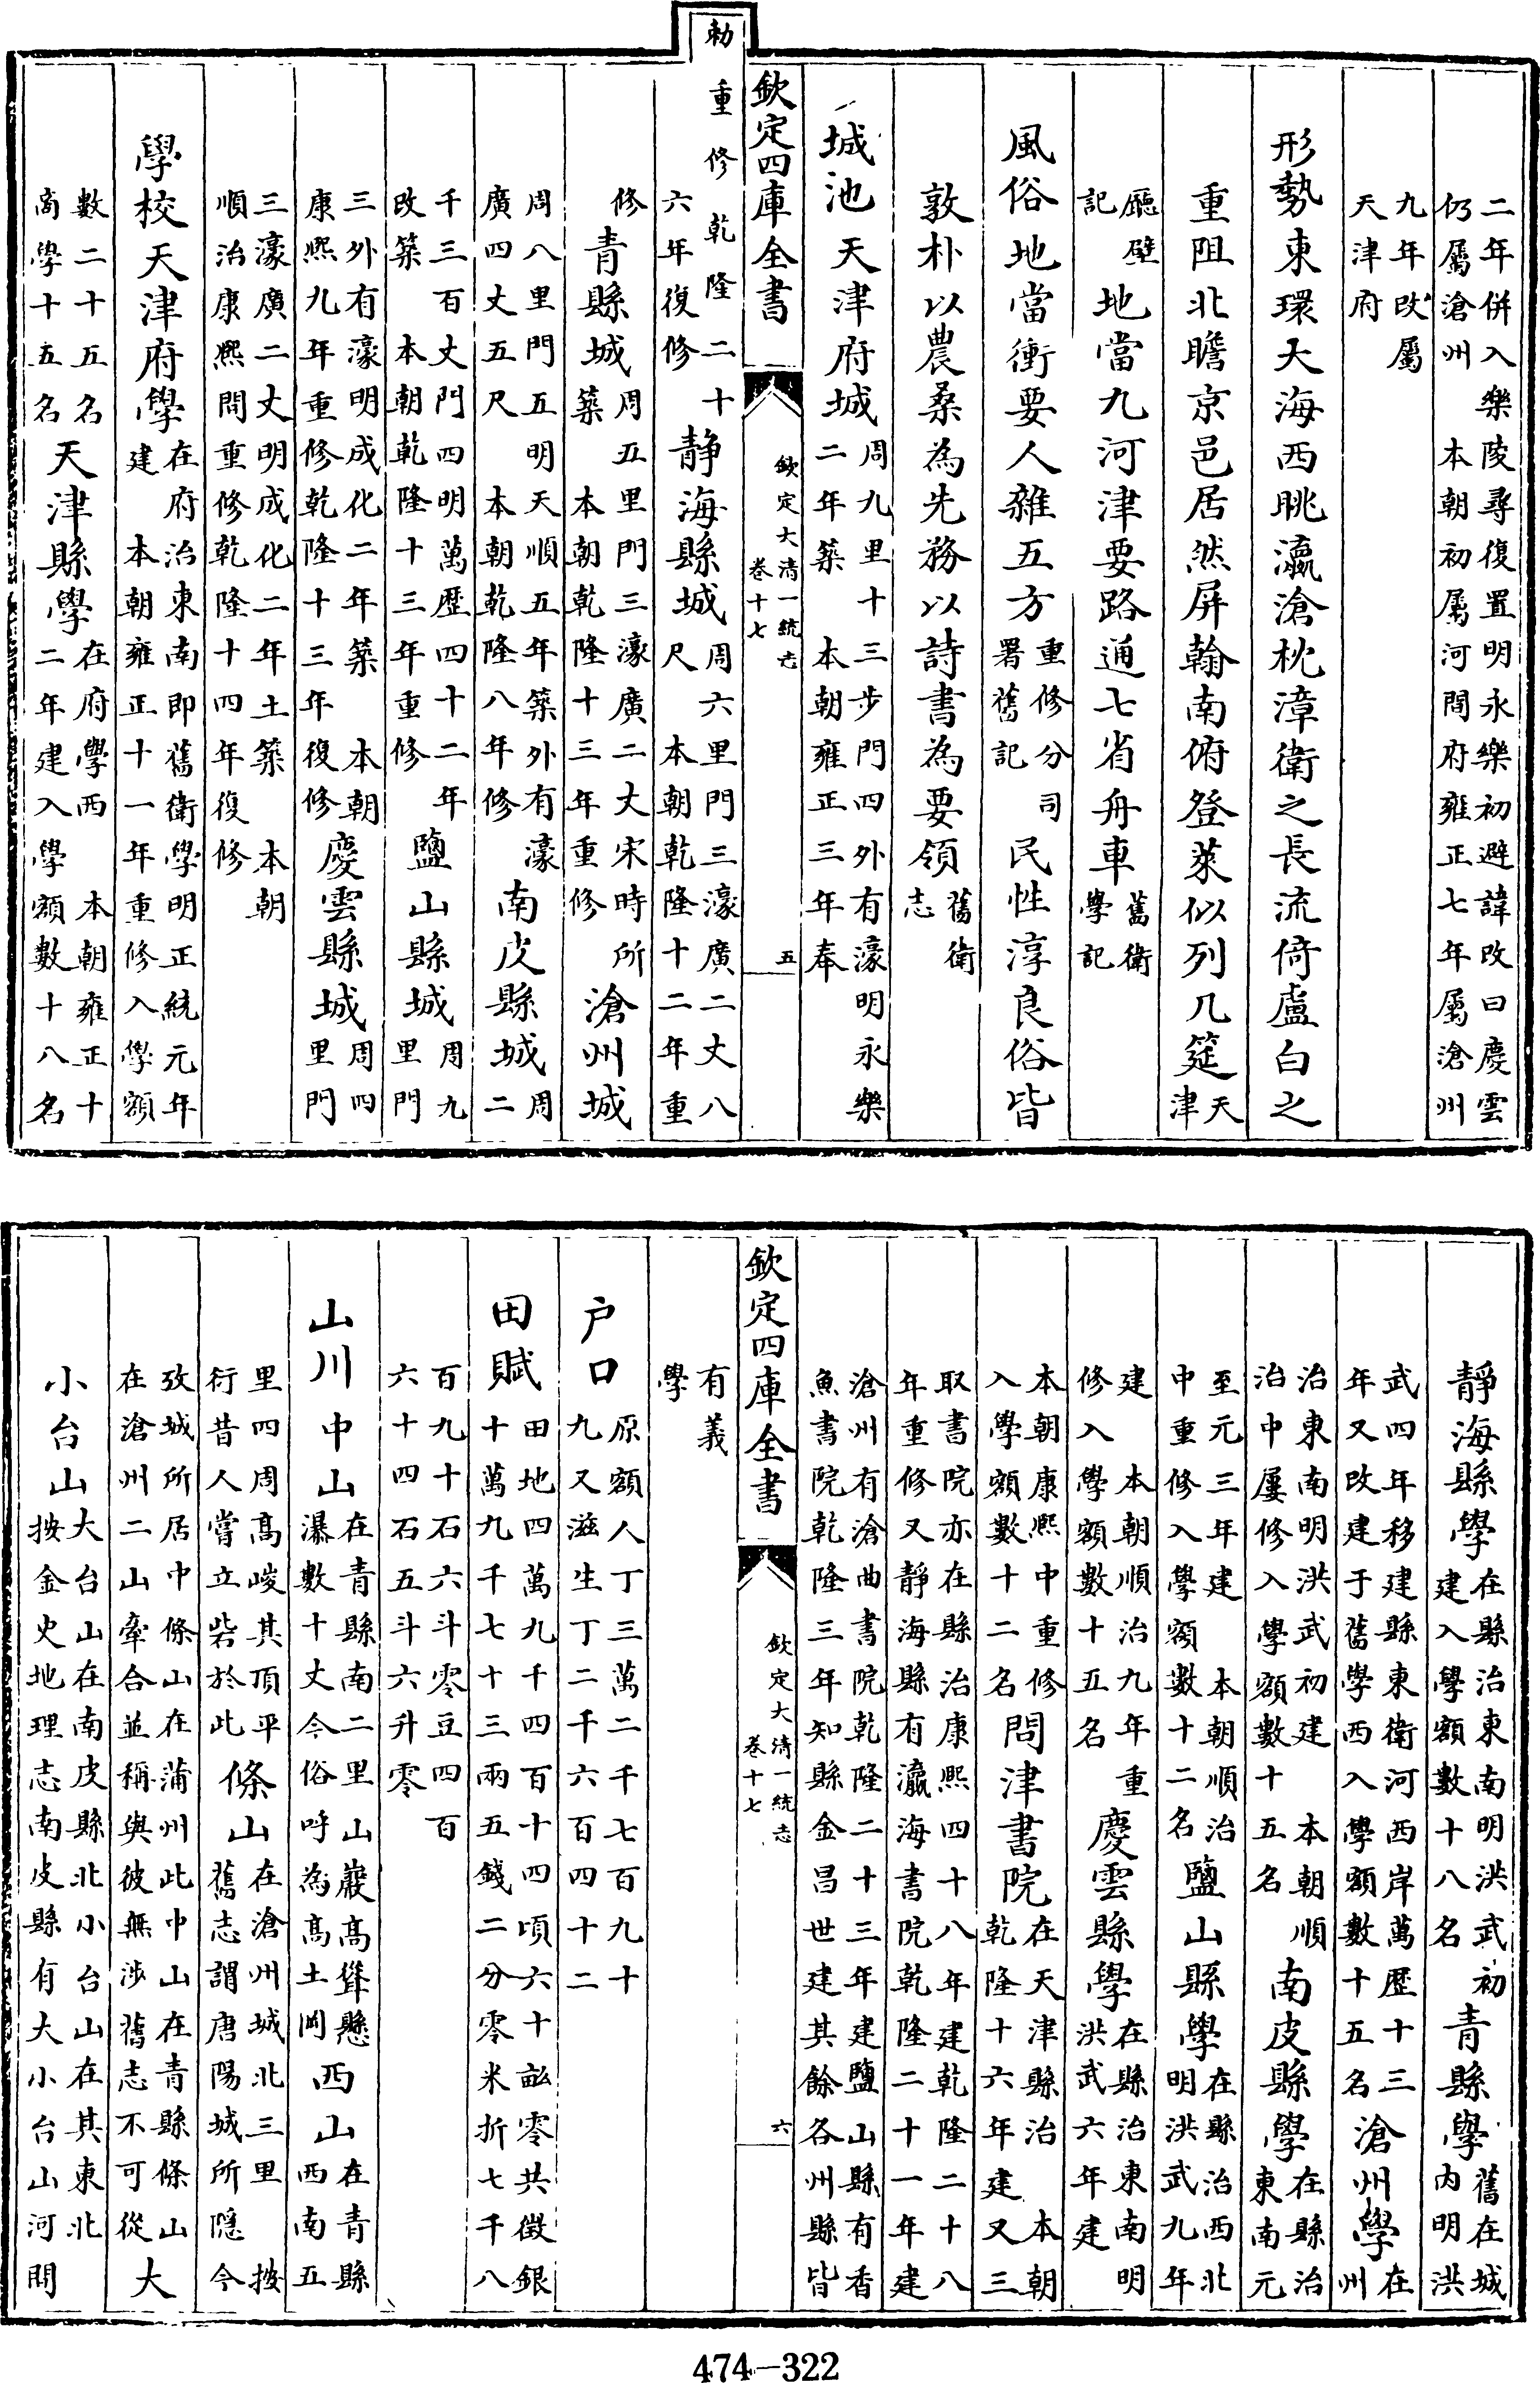 二年併入樂陵尋復置明永樂初避諱改曰慶雲
仍屬滄州本朝初屬河間府雍正七年屬滄州
九年改屬
天津府
形勢東環大海西眺瀛滄枕漳衛之長流倚盧白之
重阻北瞻京邑居然屏翰南俯登萊似列几筵天津
廳壁記地當九河津要路通七省舟車舊衛學記
風俗地當衝要人雜五方重修分司署舊記民性淳良俗皆
敦朴以農桑為先務以詩書為要領舊衛志
城池天津府城周九里十三步門四外有濠明永樂二年築本朝雍正三年奉
欽定四庫全書 欽定大清一統志卷十七 五
勅重修乾隆二十六年復修靜海縣城周六里門三濠廣二丈八尺本朝乾隆十二年重
修青縣城周五里門三濠廣二丈宋時所築本朝乾隆十三年重修滄州城
周八里門五明天順五年築外有濠廣四丈五尺本朝乾隆八年修南皮縣城周二
千三百丈門四明萬歷四十二年改築本朝乾隆十三年重修鹽山縣城周九里門
三外有濠明成化二年築本朝康熙九年重修乾隆十三年復修慶雲縣城周四里門
三濠廣二丈明成化二年土築本朝順治康熙間重修乾隆十四年復修
學校天津府學在府治東南即舊衛學明正統元年建本朝雍正十一年重修入學額
數二十五名商學十五名天津縣學在府學西本朝雍正十二年建入學額數十八名
靜海縣學在縣治東南明洪武初建入學額數十八名青縣學舊在城內明洪
武四年移建縣東衛河西岸萬歷十三年又改建于舊學西入學額數十五名滄州學在州
治東南明洪武初建本朝順治中屢修入學額數十五名南皮縣學在縣治東南元
至元三年建本朝順治中重修入學額數十二名鹽山縣學在縣治西北明洪武九年
建本朝順治九年重修入學額數十五名慶雲縣學在縣治東南明洪武六年建
本朝康熙中重修入學額數十二名問津書院在天津縣治本朝乾隆十六年建又三
取書院亦在縣治康熙四十八年建乾隆二十八年重修又靜海縣有瀛海書院乾隆二十一年建
滄州有滄曲書院乾隆二十三年建鹽山縣有香魚書院乾隆三年知縣金昌世建其餘各州縣皆
欽定四庫全書 欽定大清一統志卷十七 六
有義學
户口原額人丁三萬二千七百九十九又滋生丁二千六百四十二
田賦田地四萬九千四百十四頃六十畝零共徵銀十萬九千七十三兩五錢二分零米折七千八
百九十石六斗零豆四百六十四石五斗六升零
山川中山在青縣南二里山巖高聳懸瀑數十丈今俗呼為高土岡西山在青縣西南五
里四周高峻其頂平衍昔人嘗立砦於此條山在滄州城北三里舊志謂唐陽城所隱今按
攷城所居中條山在蒲州此中山在青縣條山在滄州二山牽合並稱與彼無涉舊志不可從大
小台山大台山在南皮縣北小台山在其東北按金史地理志南皮縣有大小台山河間
474-322